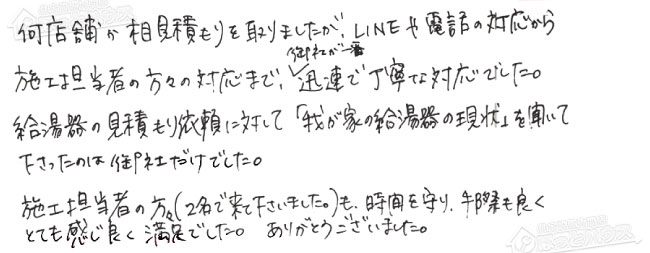 何店舗か相見積もりを取りましたが、LINEや電話の対応から
施工担当者の方々の対応まで、御社が一番迅速で丁寧な対応でした。
給湯器の見積もり依頼に対して「我が家の給湯器の現状」を聞いて
下さったのは御社だけでした。
施工担当者の方々(2名で来て下さいました。)も、時間を守り、手際も良く
とても感じ良く満足でした。ありがとうございました。